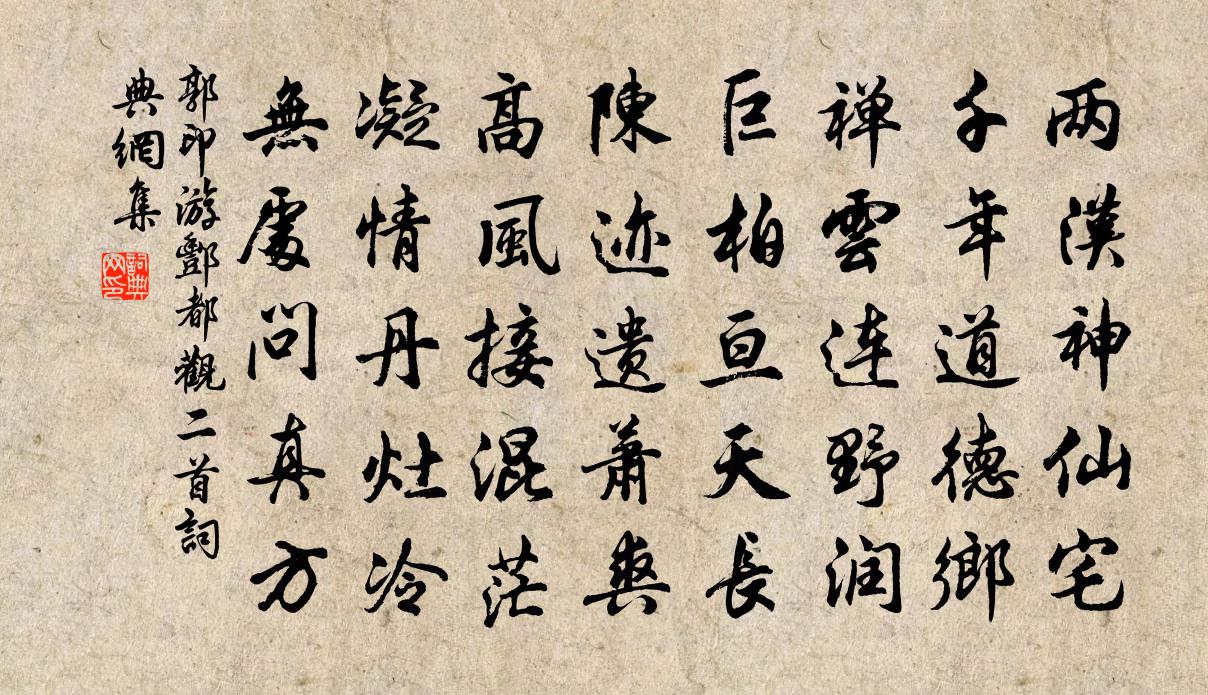 两漢神仙宅
千年道德鄉
禅雲连野润
巨柏亘天長
陳迹遗萧爽
髙風接混茫
凝情丹灶冷
無處问真方
郭印游酆都觀二首詞
典網集
詞典
网印